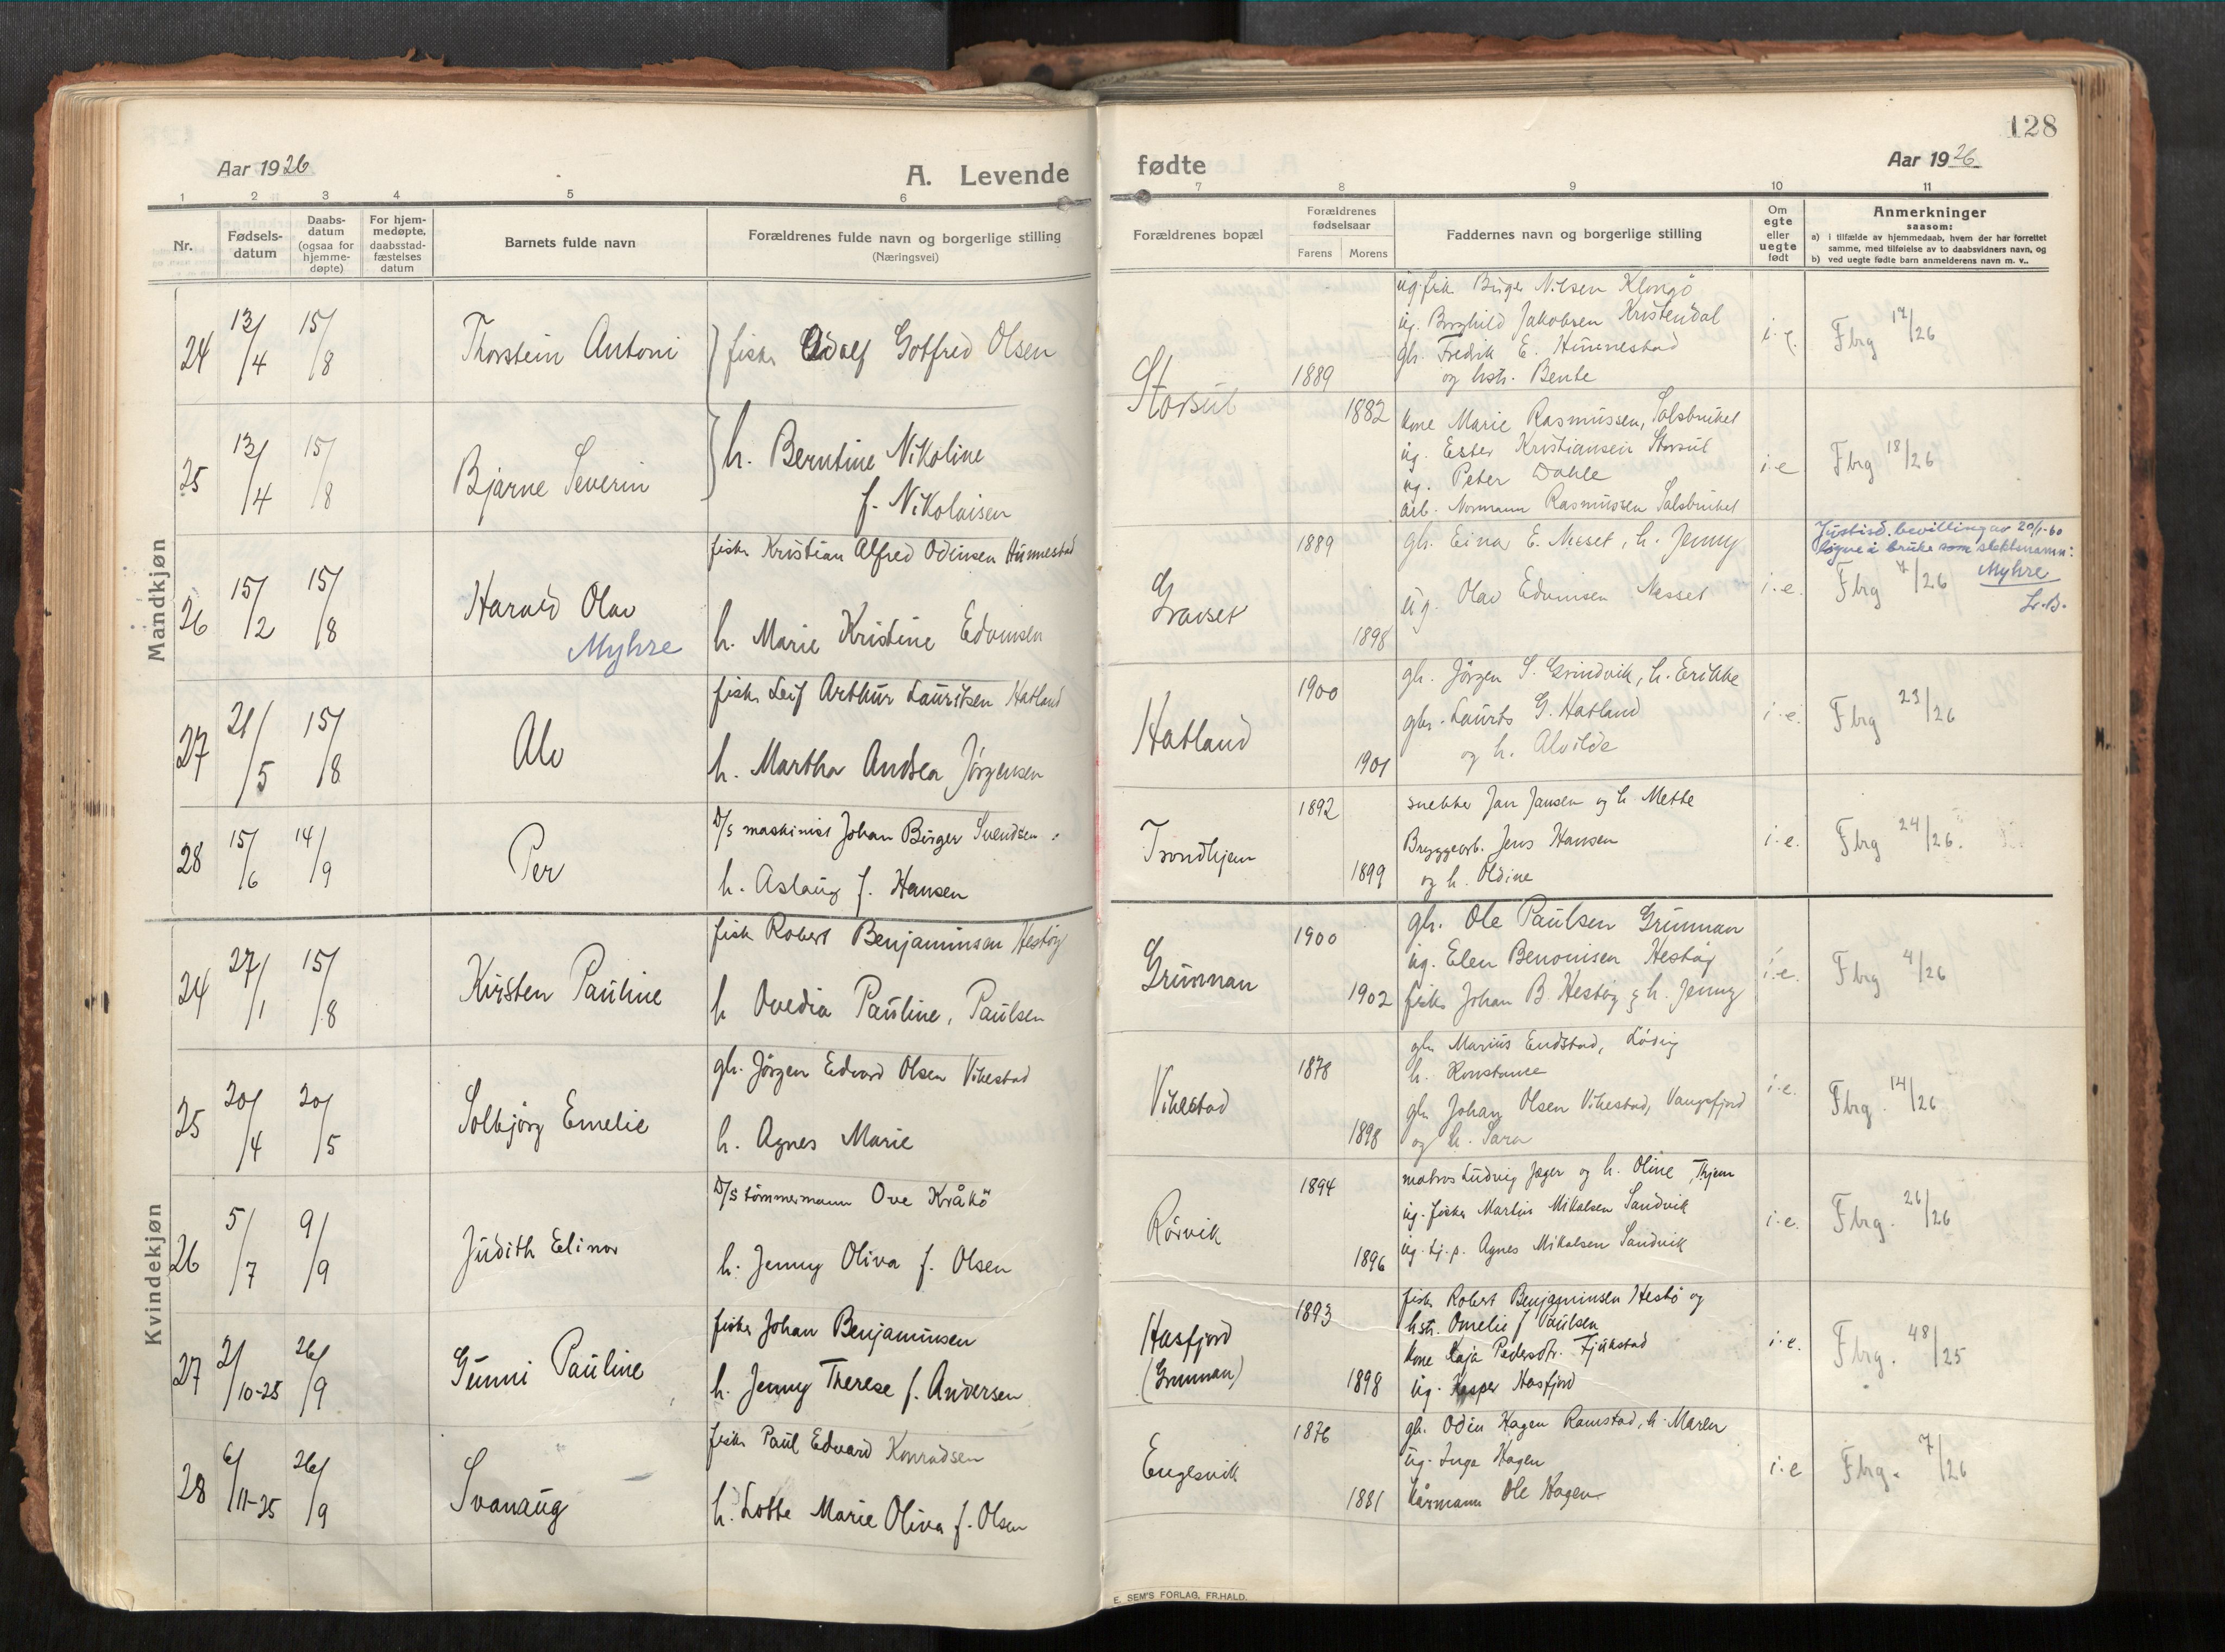 128
Aar 1926
A. Levende
fødte
Aar 1926
1 2 3 4 5 6 7 8 9 10 11
Nr.
Fødsels-
datum
Daabs-
datum
(ogsaa for
hjemme-
døpte)
For hjem-
medøpte,
daabsstad-
fæstelses
datum
Barnets fulde navn
Forældrenes fulde navn og borgerlige stilling
(Næringsvei)
Forældrenes bopæl
Forældrenes
fødselsaar
Farens Morens
Faddernes navn og borgerlige stilling
Om
egte
eller
uegte
født
Anmerkninger
saasom:
a) i tilfælde av hjemmedaab, hvem der har forrettet
samme, med tilføielse av to daabsvidners navn, og
b) ved uegte fødte barn anmelderens navn m. v..
Mandkjøn
24 13/4 15/8 Thorstein Antoni } fisker Adolf Gotfred Olsen
Storsul 1889
ug. fisk Birger Nilsen
ug. Borghild Jakobsen Kristendal
gb. Fredrik E. Hunnestad
og hstr. Bente
i. e. Fbrg 17/26
25 13/4 15/8 Bjarne Severin } h. Berntine Nikoline
f. Nikolaisen
1882
kone Marie Rasmussen, Salsbruket
ug. Ester Kristiansen Storsul
ug. Peter Dahle
arb. Normann Rasmussen Salsbruket
i-e Fbrg 18/26
26 15/2 15/8 Harald Olav
Myhre
fisker Kristian Alfred Odinsen Hunnestad
h. Marie Kristine Edvinsen
1889
1898
gb. Einar E. Næset, h. Jenny
ug. Olav Edvinsen Næsset
i-e. Fbrg 7/26
Justisd. bevilling av 20/1-60
å bruke som slektsnamn:
Myhre
27 21/5 15/8 Alv
fisker Leif Arthur Lauritsen Hatland
h. Martha Andrea Jörgensen
Hatland 1900
1901
gb. Jörgen S. Grindvik, h. Erikke
gbr. Laurits G. Hatland
og h. Alvilde
i-e. Fbrg 23/26
28 15/6 14/9 Per
D/S maskinist Johan Birger Svendsen
h. Aslaug f. Hansen
Trondhjem 1892
1899
snekker Jan Jansen og h. Mette
Bryggearb. Jens Hansen
og h. Oldine
i-e. Fbrg 24/26.
Kvindekjøn
24 27/1 15/8 Kirsten Pauline
fisk Robert Benjaminsen Hestöy
h Ovedia Pauline, Paulsen
Grünnan 1900
1902
gb. Ole Paulsen Grünnan
ug. Elen Benonisen Hestöy
fisker Johan B Hestöy & h. Jenny
i.e. Fbrg 4/26
25 20/4 20/5 Solbjörg Emelie
gb. Jörgen Edvard Olsen Vikestad
h. Agnes Marie
Vikestad 1878
1898
gb. Marius Endstad,
h. Konstanse
gb. Johan Olsen Vikestad,
og h. Sara
i-e. Fbrg. 14/26
26 5/7 9/9 Judith Elinor
D/S tömmermann Ove Kråkö
h. Jenny Oliva f. Olsen
Rörvik 1894
1896
matros Ludvig Jæger og h. Oline, Thjem
ug. fisker Martin Mikalsen Sandvik
ug. tj. p. Agnes Mikalsen Sandvik
i-e. Fbrg. 26/26
27 2/10-25 26/9 Gunni Pauline
fisker Johan Benjaminsen
h. Jenny Therese f. Andersen
Hasfjord
(Grunnan)
1893
1898
fisk. Robert Benjaminsen Hestö og
hstr. Omelie f Paulsen
kone Kaja Pedersdtr. Fjukstad
ug. Kasper Hasfjord
i-e. Fbrg. 48/25
28 6/11-25 26/9 Svanaug
fisker Paul Edvard Konradsen
h. Lotte Marie Oliva f. Olsen
Engesvik 1876
1881
gb. Odin Hagen Ramstad, h. Maren
ug. Inga Hagen
Ole Hagen
i-e Fbrg. 7/26
E. SEM'S FORLAG, FR.HALD.